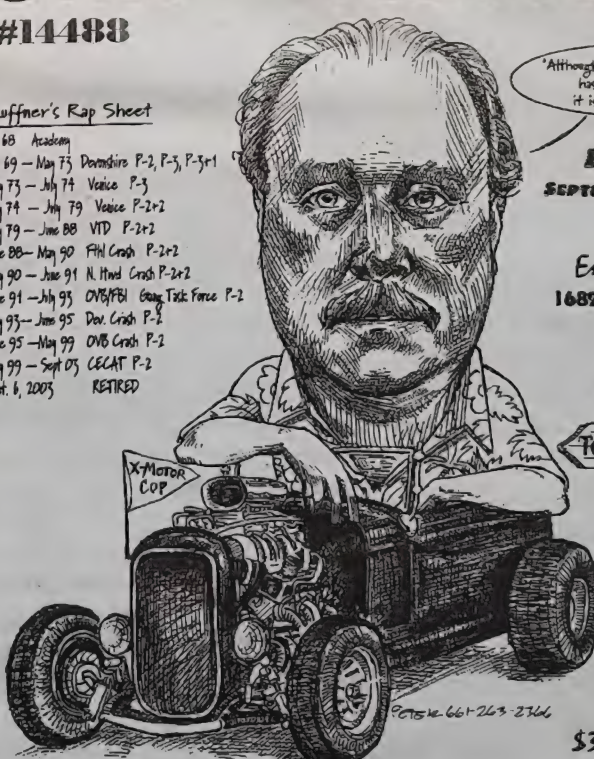 #14488
uffner's Rap Sheet
68 Academy
69 – May 73 Devonshire P-2, P-3, P-3+1
73 – July 74 Venice P-3
74 – July 79 Venice P-2+2
79 – June 88 VTD P-2+2
e 88 – May 90 Fthl Crash P-2+2
90 – June 91 N. Hwd Crash P-2+2
e 91 – July 93 OVB/FBI Gang Task Force P-2
93 – June 95 Dev. Crash P-2
e 95 – May 99 OVB Crash P-2
99 – Sept 03 CECAT P-2
t. 6, 2003 RETIRED
"Although
has
it i
SEPT
E
1682
To
X-MOTOR
COP
661-263-2366
$3